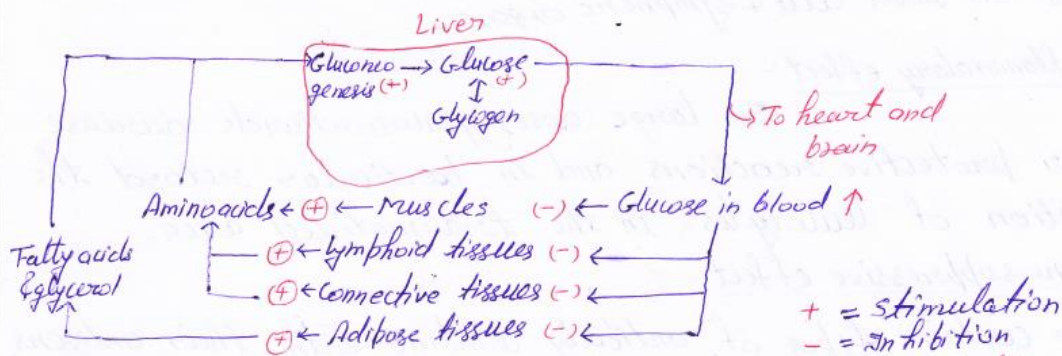 Liver
Gluconeo → Glucose
genesis (+) (+)
↕
Glycogen
→ To heart and
brain
Aminoacids ← (+) ← Muscles (-) ← Glucose in blood ↑
Fatty acids
& glycerol
(+) ← Lymphoid tissues (-) ←
(+) ← Connective tissues (-) ←
(+) ← Adibose tissues (-) ←
+ = Stimulation
= Inhibition